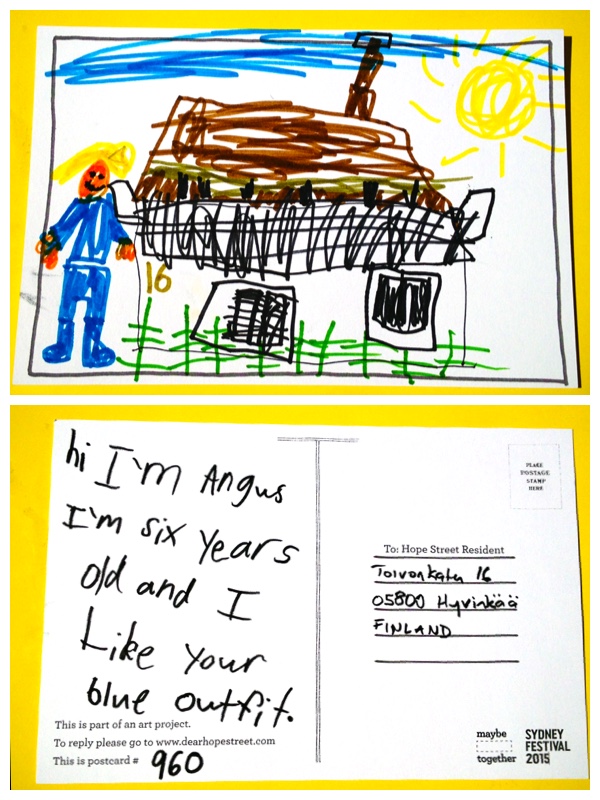 16
hi I'm Angus
I'm six years
old and I
Like your
blue outfit.
This is part of an art project.
To reply please go to www.dearhopestreet.com
This is postcard # 960
PLACE
POSTAGE
STAMP
HERE
To: Hope Street Resident
Toivonkatu 16
05800 Hyvinkää
FINLAND
maybe
together
SYDNEY
FESTIVAL
2015